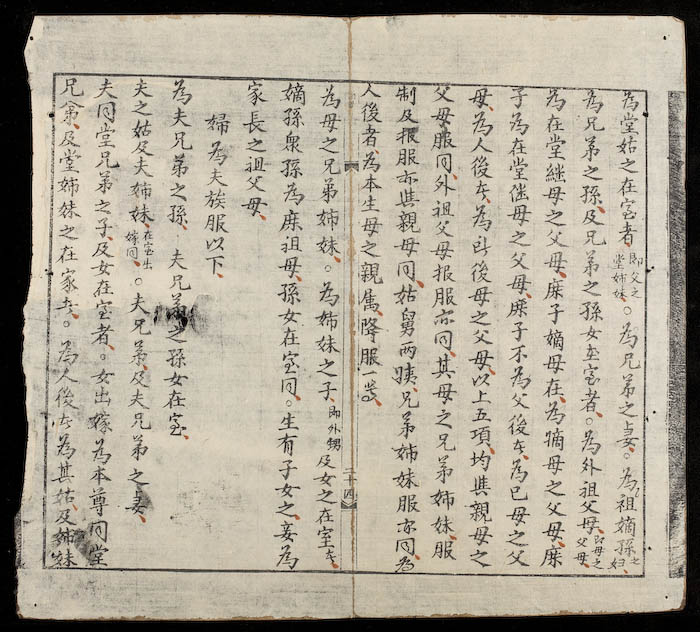 為堂姑之在室者即父之堂姊妹。為兄弟之妻。為祖嫡孫之妇
為兄弟之孫、及兄弟之孫女在室者。為外祖父母、即母之父母
為在堂継母之父母、庶子嫡母在、為嫡母之父母、庶
子為在堂継母之父母、庶子不為父後者、為己母之父
母、為人後者、為所後母之父母、以上五項、均與親母之
父母服同、外祖父母报服亦同、其母之兄弟姉妹、服
制及报服亦與親母同、姑舅两姨、兄弟姉妹服亦同、為
人後者、為本生母之親属降服一等、
二十四
為母之兄弟姉妹。為姉妹之子、即外甥及女之在室者、
嫡孫衆孫為庶祖母、孫女在室同。生有子女之妾為
家長之祖父母、
婦為夫族服以下、
為夫兄弟之孫、夫兄弟之孫女在室、
夫之姑及夫姉妹、在室出嫁同、。夫兄弟、及夫兄弟之妻、
夫同堂兄弟之子、及女在室者。女出嫁為本尊同堂
兄弟、及堂姉妹之在家者。為人後者、為其姑、及姉妹